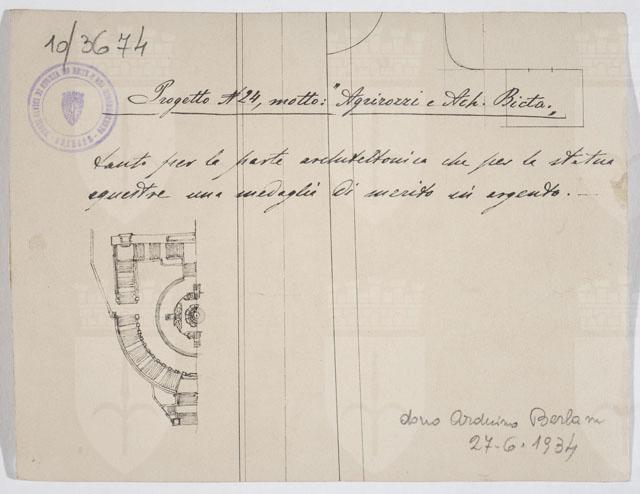 10/3674
Progetto N 24, motto: "Agrirozzi e Ach. Bicta.„
tanto per la parte architettonica che per la statua
equestre una medaglia di merito in argento. —
dono Arduino Berlam
27-6-1934